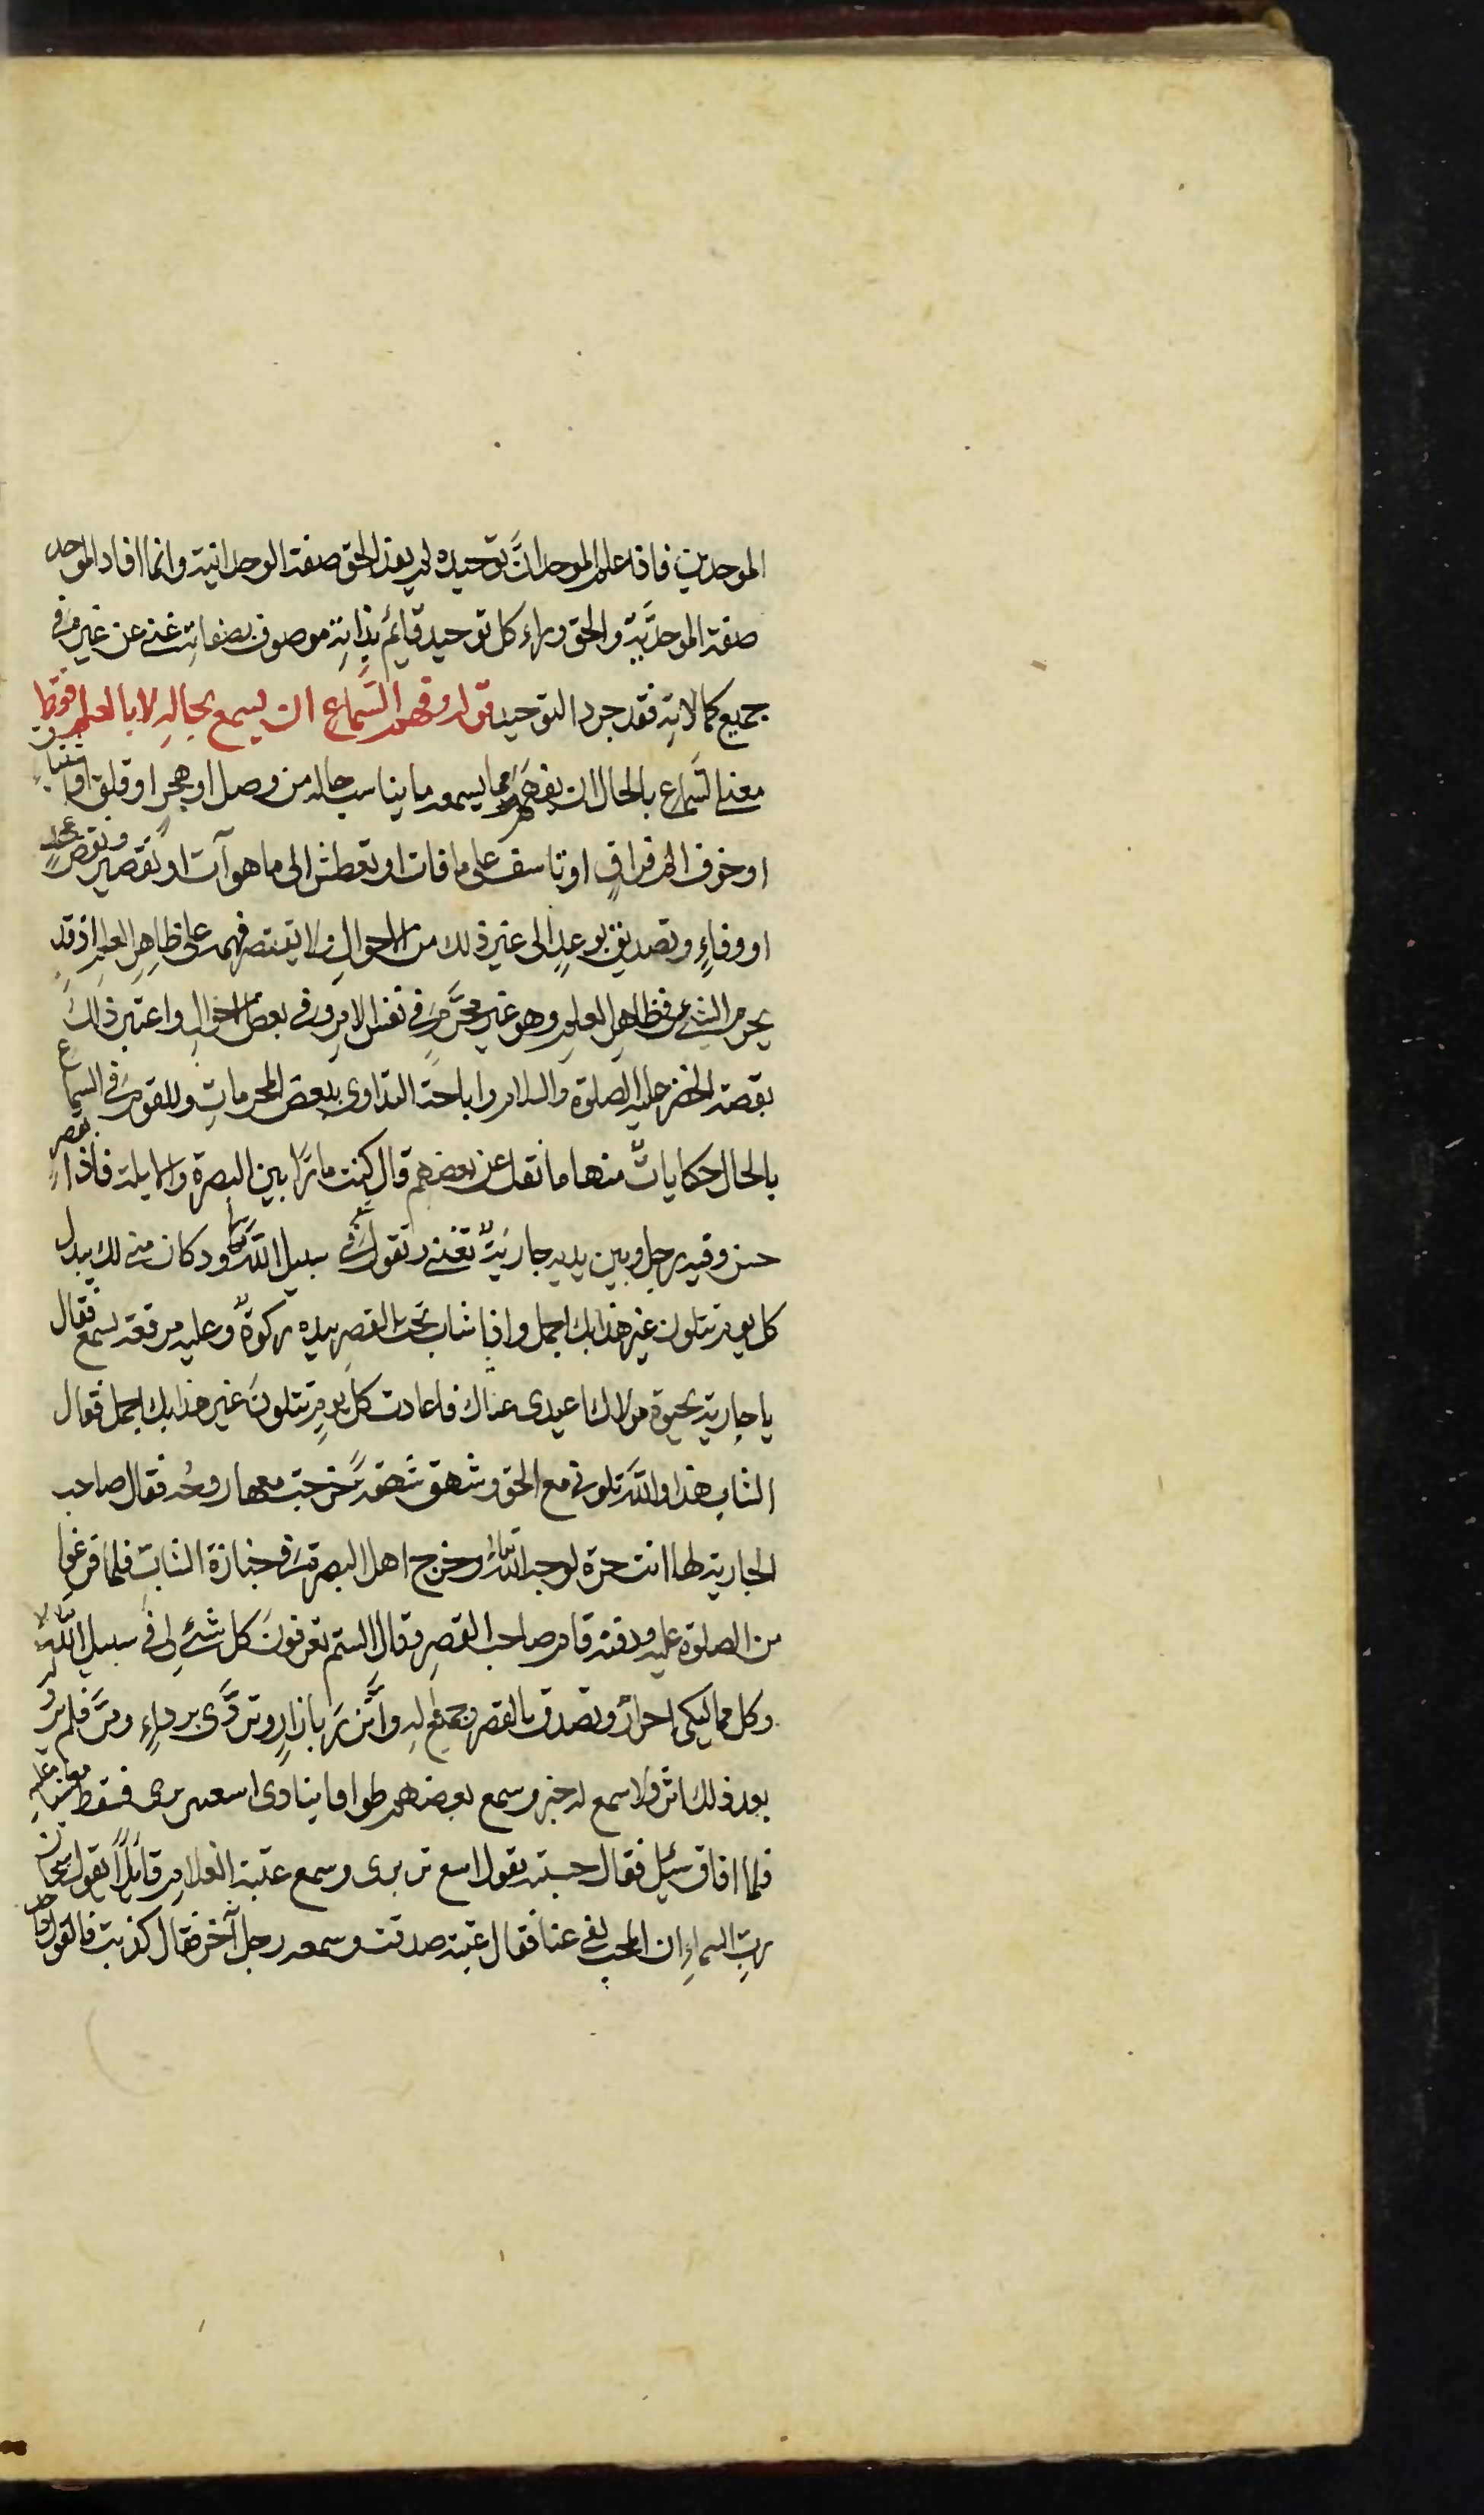 الموحدين فاذا علم الموحد انَّ توحيده لم يفد الحق صفة الوحدانية وانما افاد الموحد
صفة الموحدّية والحق وراء كل توحيد قايم بذاتهِ موصوف بصفاته غنى عن غيره فى
جميع كمالاتهِ فقد جرد التوحيد قوله وفهم السَّماع ان يسمع بحالهِ لا بالعلم فقط
معنى السَّماع بالحال ان يفهم مما يسمعه ما يناسب حاله من وصل او هجر او قلق او
او خوف الم فراقٍ او تاسف على ما فات او تعطش الى ما هو آت او تقصير ونقض عهد
او وفاءٍ وتصديق بوعدٍ الى غير ذلك من الاحوال ولا يقتصر فهمه على ظاهر العلم اذ قد
يحرم الشئ فى ظاهر العلم وهو غير محرَّم فى نفس الامر وفى بعض الاحوال واعتبر ذلك
بقصة الخضر عليه الصلوة والسلام واباحة التداوى ببعض المحرمات وللقوم فى السماع
بالحال حكايات منها ما نقل عن بعضهم قال كنت مارًا بين البصرة والايلة فاذا بقصر
حسن وفيه رجل وبين يديه جاريةٌ تغنى وتقول فى سبيل الله ود كان منى لك يبذل
كل يوم تتلون غير هذا بك اجمل واذا شاب تحت القصر بيده ركوةٌ وعليه مرقعة يسمع فقال
يا جارية بحيوة مولاك اعيدى غناك فاعادت كل يومٍ تتلون غير هذا بك اجمل فقال
الشاب هذا والله تلونى مع الحق وشهق شهقةً خرجت معها روحُه فقال صاحب
الجارية لها انت حرة لوجه الله تعالى وخرج اهل البصرة فى جنازة الشاب فلما فرغوا
من الصلوة عليه ودفنه قام صاحب القصر وقال الستم تعرفون كل شئ لى فى سبيل الله
وكل مماليكى احرارٌ وتصدق بالقصر وجميع له واتَّزر بازارٍ وتردَّى برداءٍ ومرَّ فلم ير له
بعد ذلك اثر ولا سمع له خبر وسمع بعضهم طوافا ينادى اسعتر برى فسقط مغشيا عليه
فلما افاق سئِل فقال حسبته يقول اسع تر برى وسمع عتبة الغلام قائلًا يقول سبحان
ربِّ السماءِ ان المحب لفى عنا فقال عتبة صدقت وسمعه رجل آخر فقال كذبت فالقول واحد